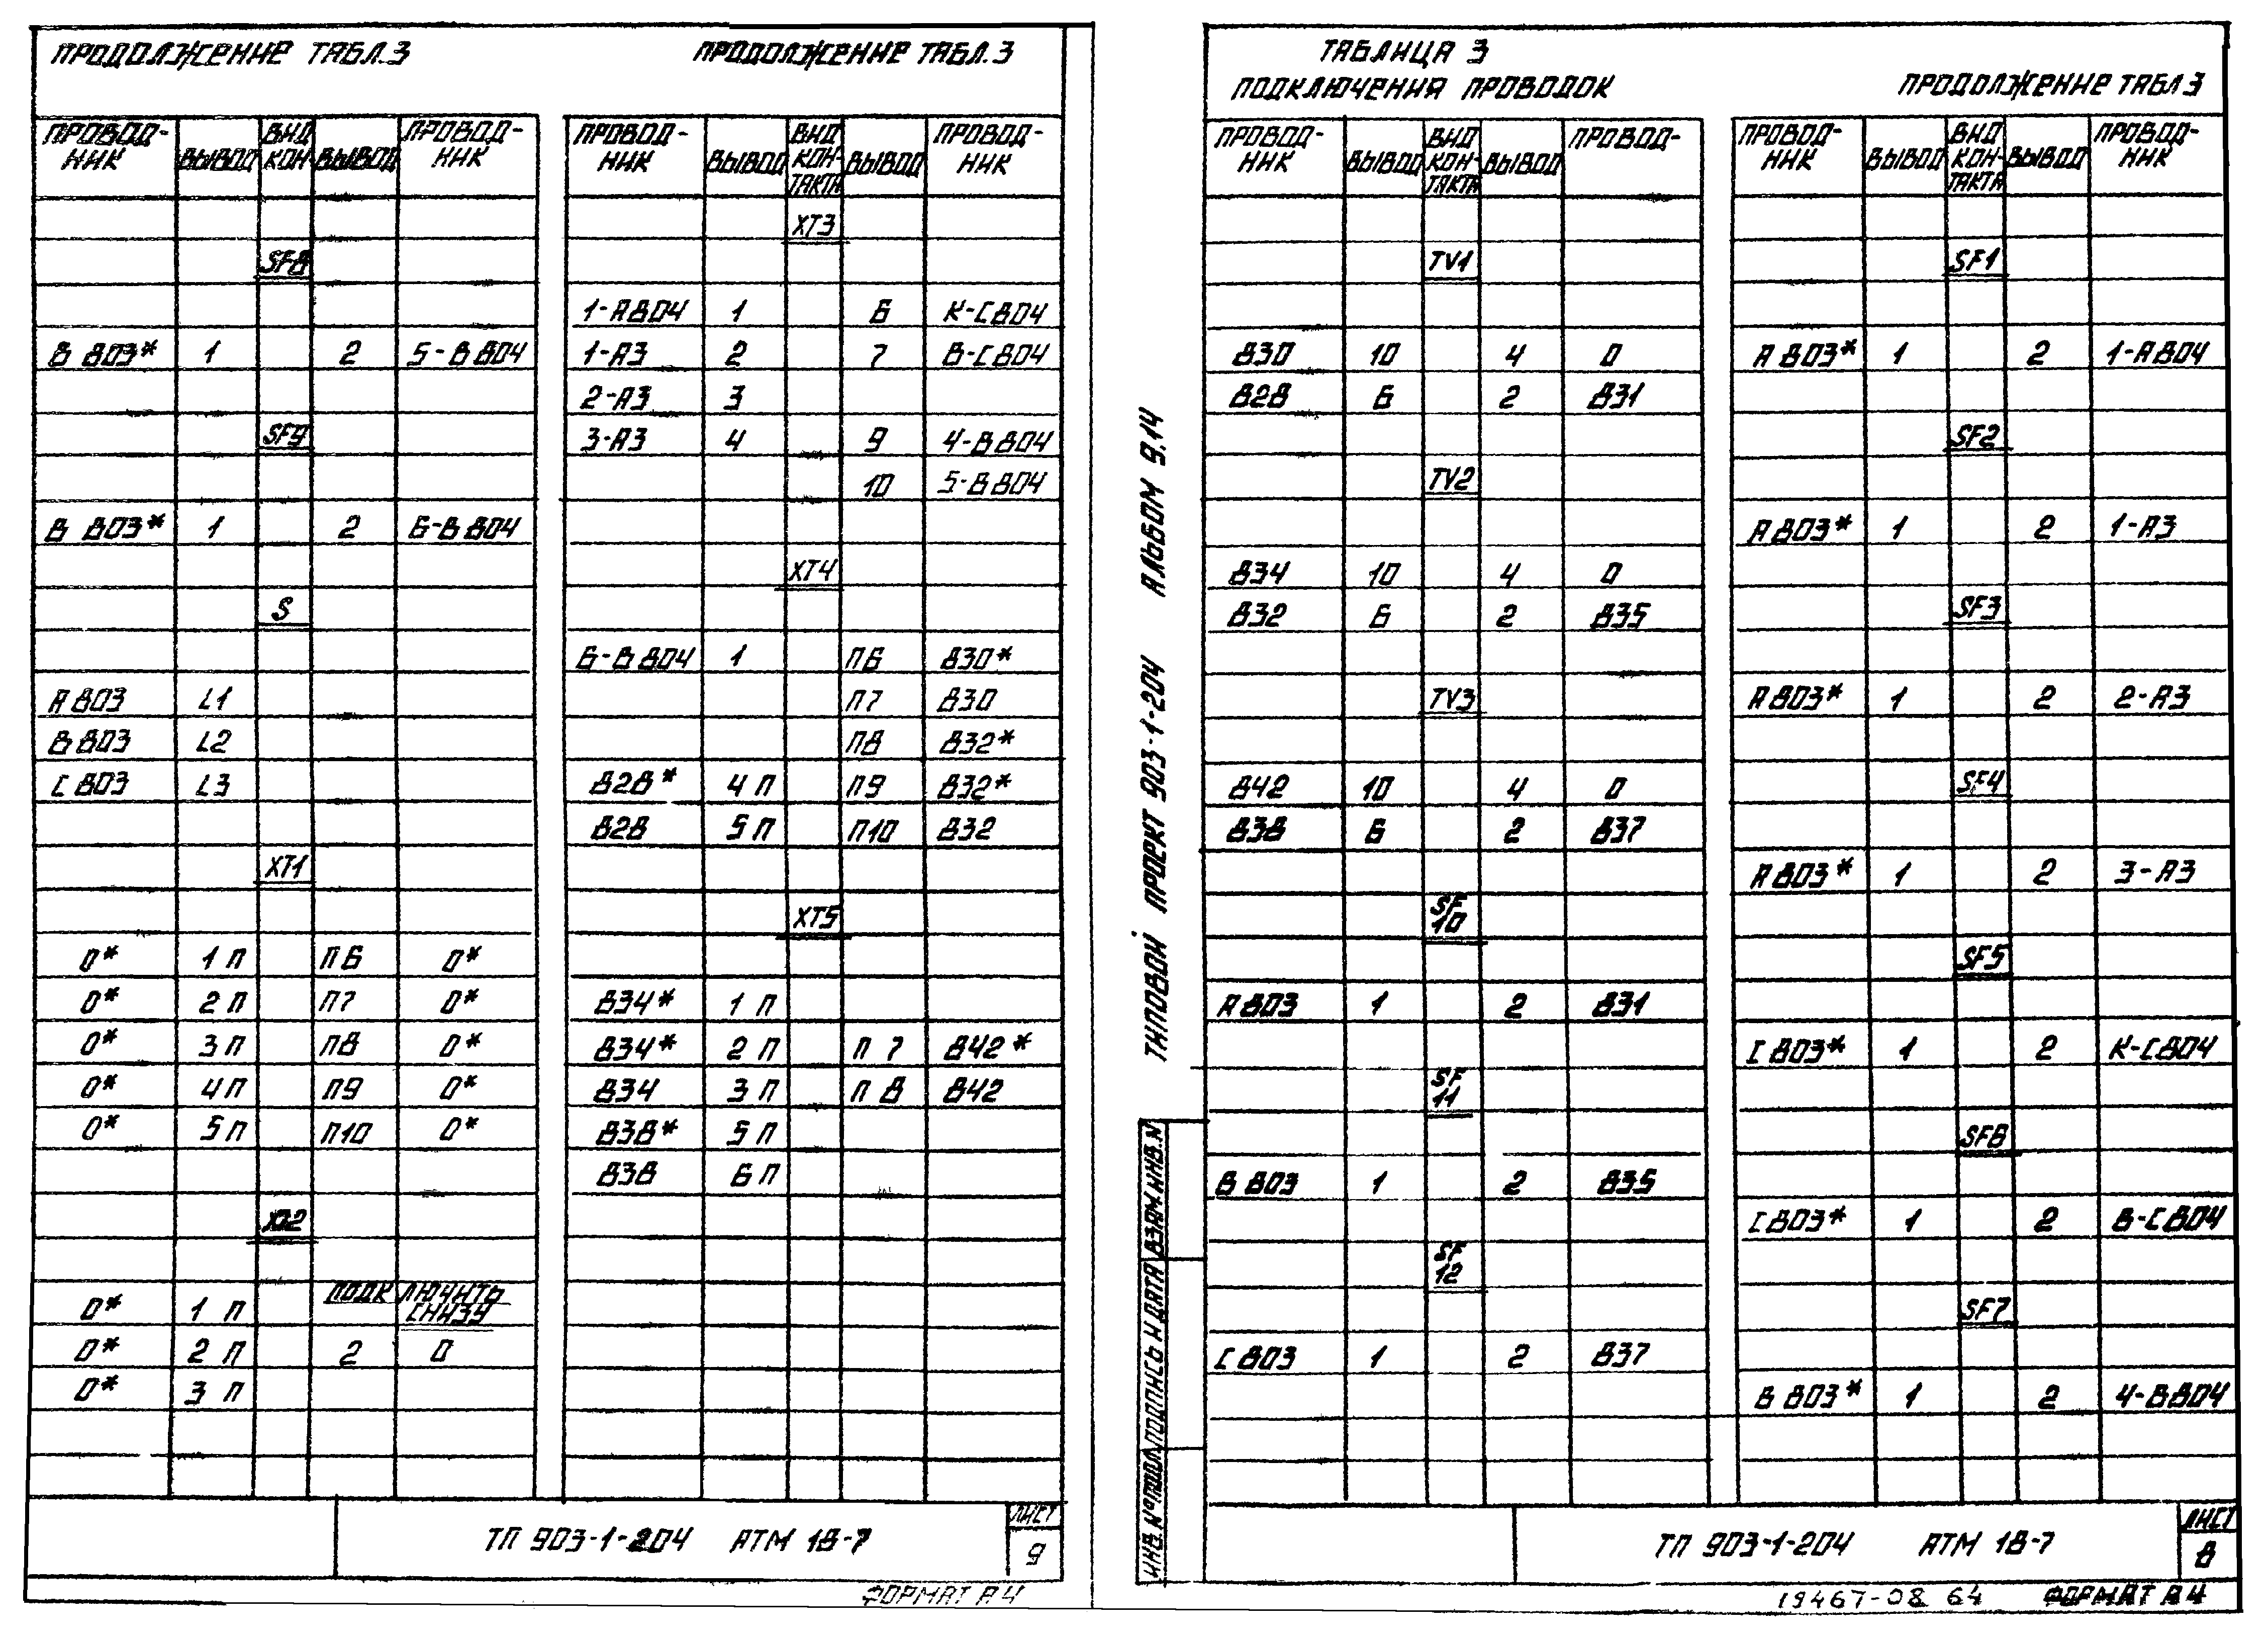 ПРОДОЛЖЕНИЕ ТАБЛ.3
ПРОВОД-НИК ВЫВОД ВИД КОН- ВЫВОД ПРОВОД-НИК
SF8
В 803* 1 2 5-В 804
SF9
В 803* 1 2 6-В 804
S
А 803 L1
В 803 L2
С 803 L3
XT1
0* 1 П П 6 0*
0* 2 П П7 0*
0* 3 П П8 0*
0* 4 П П9 0*
0* 5 П П10 0*
XT2
ПОДКЛЮЧИТЬ
СНИЗУ
0* 1 П
0* 2 П 2 0
0* 3 П
ПРОДОЛЖЕНИЕ ТАБЛ.3
ПРОВОД-НИК ВЫВОД ВИД КОН-ТАКТА ВЫВОД ПРОВОД-НИК
XT3
1-А804 1 6 К-С804
1-А3 2 7 В-С804
2-А3 3
3-А3 4 9 4-В804
10 5-В804
XT4
6-В 804 1 П6 830*
П7 830
П8 832*
828* 4 П П9 832*
828 5 П П10 832
XT5
834* 1 П
834* 2 П П 7 842*
834 3 П П 8 842
838* 5 П
838 6 П
ТП 903-1-204 АТМ 18-7
ЛИСТ
9
ФОРМАТ А4
ТИПОВОЙ ПРОЕКТ 903-1-204 АЛЬБОМ 9.14
ИНВ. №ПОДЛ. ПОДПИСЬ И ДАТА ВЗАМ. ИНВ. N
ТАБЛИЦА 3
ПОДКЛЮЧЕНИЯ ПРОВОДОК
ПРОВОД-НИК ВЫВОД ВИД КОН-ТАКТА ВЫВОД ПРОВОД-
TV1
830 10 4 0
828 6 2 831
TV2
834 10 4 0
832 6 2 835
TV3
842 10 4 0
838 6 2 837
SF
10
А 803 1 2 831
SF
11
В 803 1 2 835
SF
12
С 803 1 2 837
ПРОДОЛЖЕНИЕ ТАБЛ.3
ПРОВОД-НИК ВЫВОД ВИД КОН-ТАКТА ВЫВОД ПРОВОД-НИК
SF1
А 803* 1 2 1-А804
SF2
А 803* 1 2 1-А3
SF3
А 803* 1 2 2-А3
SF4
А 803* 1 2 3-А3
SF5
С 803* 1 2 К-С804
SF6
С 803* 1 2 В-С804
SF7
В 803* 1 2 4-В804
ТП 903-1-204 АТМ 18-7
ЛИСТ
8
19467-08 64 ФОРМАТ А4